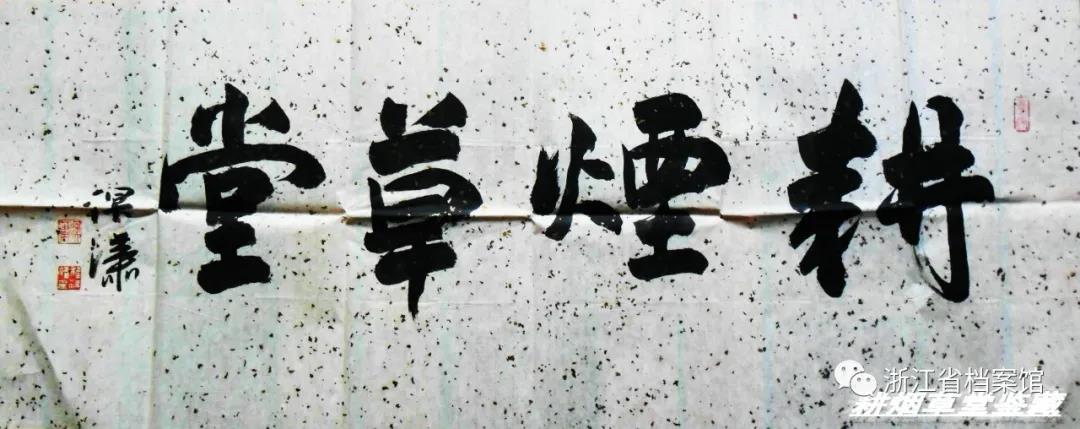 耕煙草堂
浙江省档案馆
耕烟草堂鉴藏